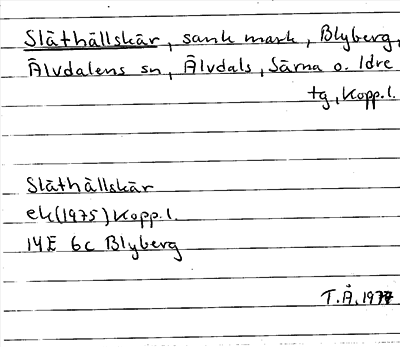 Slåthällskär, sank mark, Blyberg,
Älvdalens sn, Älvdals, Särna o. Idre
tg, Kopp.l.
Slåthällskär
ek(1975) Kopp.l.
14E 6c Blyberg
T.Å. 1977